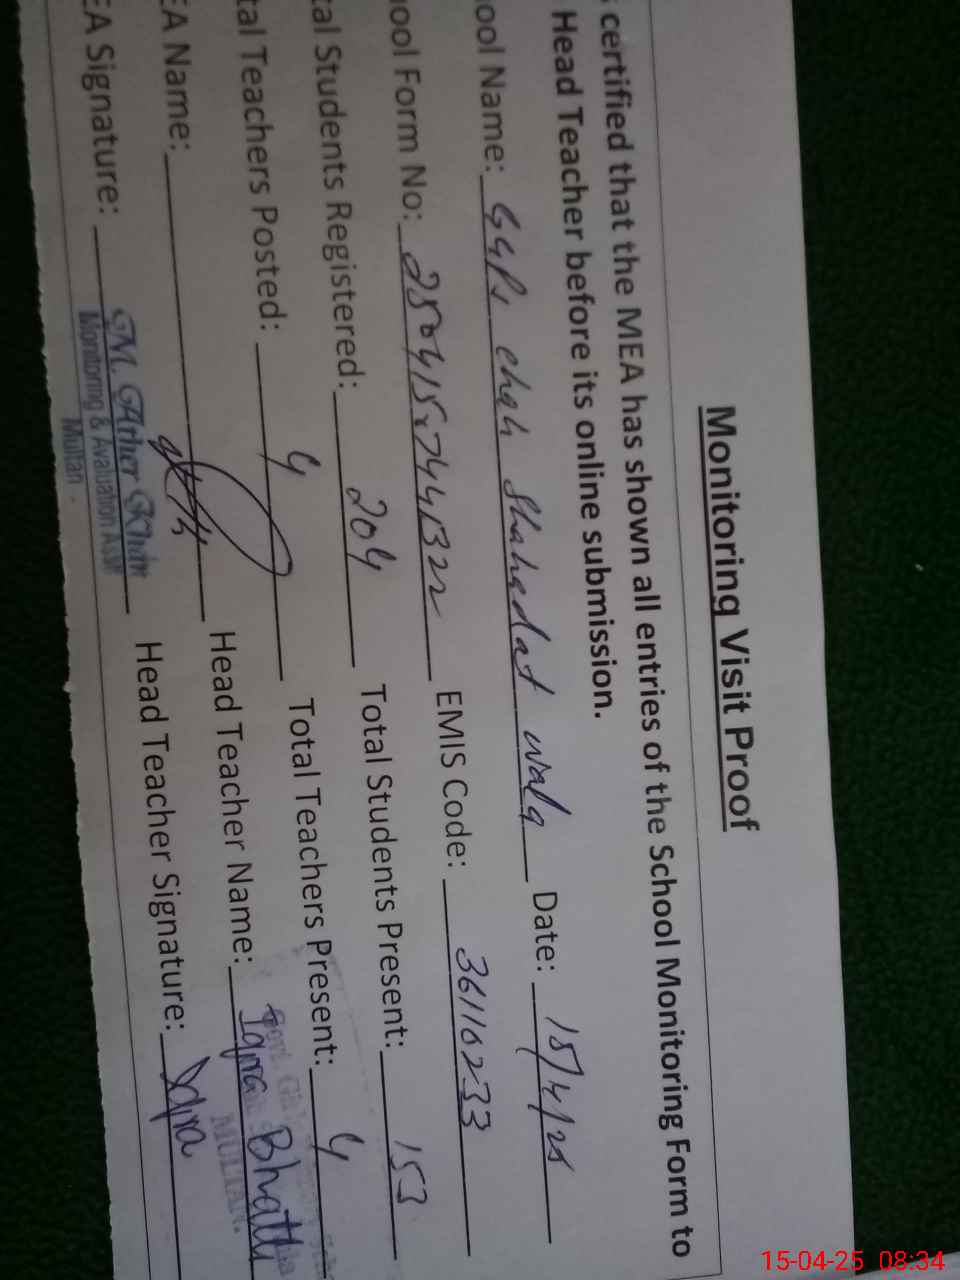 Monitoring Visit Proof
certified that the MEA has shown all entries of the School Monitoring Form to
Head Teacher before its online submission.
ool Name: GGPS chah Shahadat wala Date: 15/4/25
ool Form No: EMIS Code: 36116233
tal Students Registered: 204 Total Students Present: 153
tal Teachers Posted: 4 Total Teachers Present: 4
EA Name: Head Teacher Name: Iqra Bhatti
EA Signature: Head Teacher Signature: Iqra
M. Ather
Monitoring & Avaluation Asstt
Multan
MULTAN
15-04-25 08:34